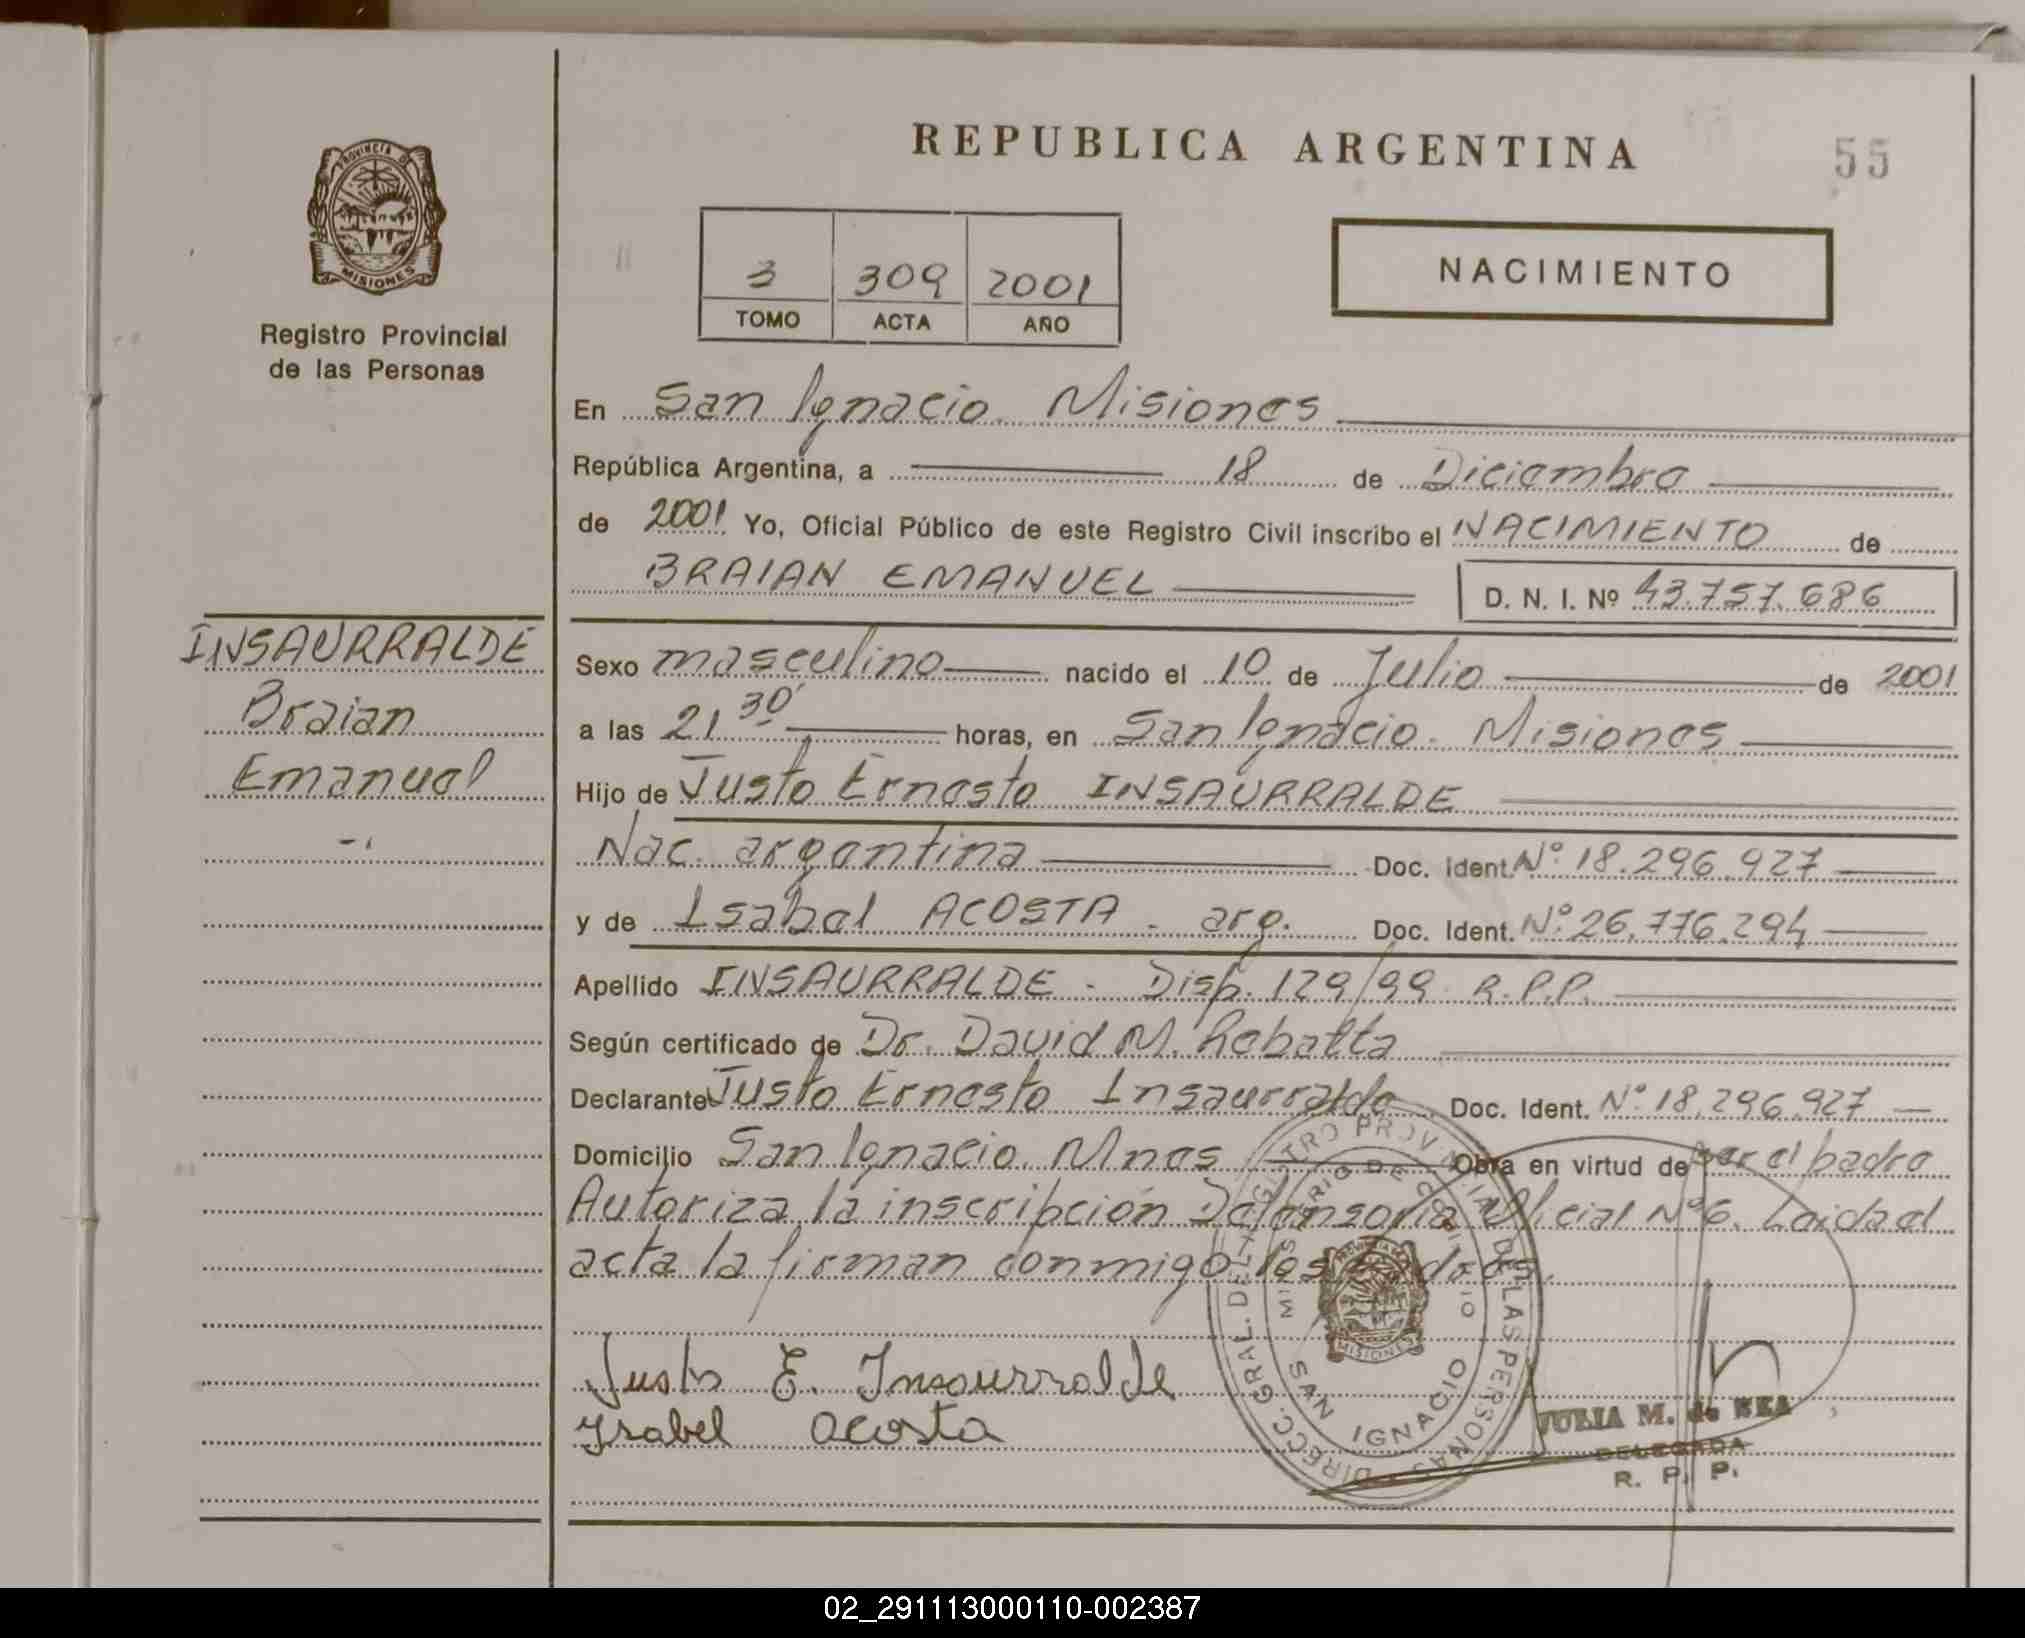 REPUBLICA ARGENTINA
55
PROVINCIA DE
MISIONES
Registro Provincial
de las Personas
3 309 2001
TOMO ACTA AÑO
NACIMIENTO
En San Ignacio. Misiones
República Argentina, a 18 de Diciembre
de 2001 Yo, Oficial Público de este Registro Civil inscribo el NACIMIENTO de
BRAIAN EMANUEL D. N. I. Nº 43.757.686
INSAURRALDE
Braian
Emanuel
Sexo masculino nacido el 10 de Julio de 2001
a las 21 30' horas, en San Ignacio. Misiones
Hijo de Justo Ernesto INSAURRALDE
Nac. argentina Doc. Ident. Nº 18.296.927
y de Isabel ACOSTA - arg. Doc. Ident. Nº 26.776.294
Apellido INSAURRALDE - Disp. 129/99 R.P.P.
Según certificado de Dr. David M. Rebatta
Declarante Justo Ernesto Insaurralde Doc. Ident. Nº 18.296.927
Domicilio San Ignacio. Mnes Obra en virtud de ser el padre
Autoriza la inscripción Defensoria Oficial Nº 6. Leida el
acta la firman conmigo los padres.
Justo E. Insaurralde
Isabel acosta
DIRECC. GRAL. DEL REGISTRO PROVINCIAL DE LAS PERSONAS
MINISTERIO DE GOBIERNO
SAN IGNACIO
MISIONES
JULIA M. de NEA
DELEGADA
R. P. P.
02_291113000110-002387